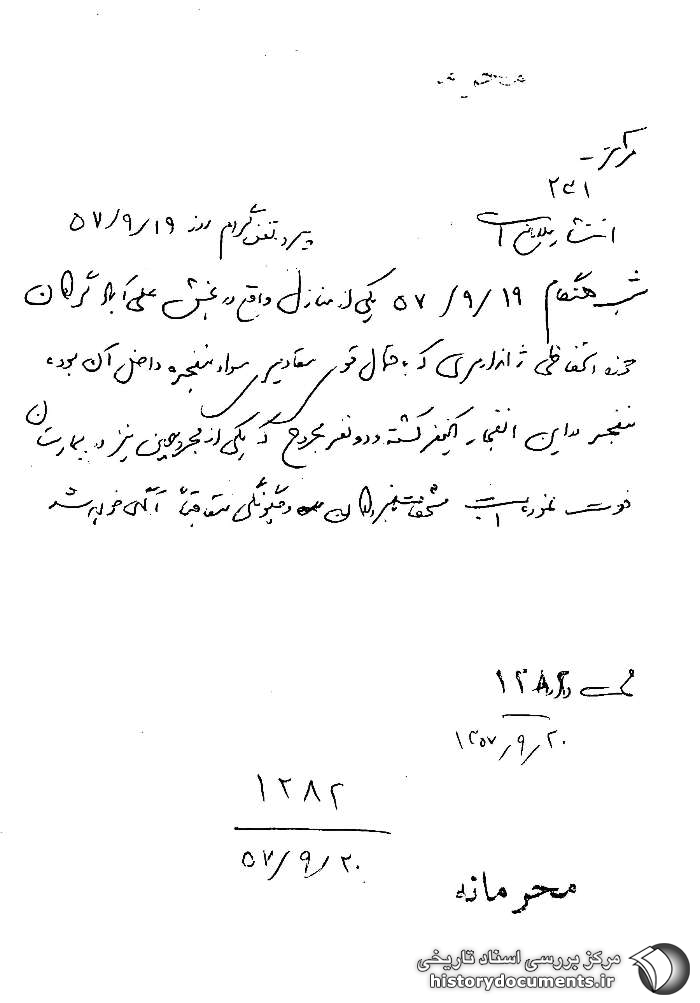 محرمانه
مرکز -
۲۴۱
انتشار است
پیرو تلفنگرام روز ۵۷/۹/۱۹
شب هنگام ۵۷/۹/۱۹ یکی از منازل واقع در بخش علی آباد گرگان
حوزه استحفاظی ژاندارمری که به احتمال قوی مقادیری مواد منفجره داخل آن بوده
منفجر در این انفجار یکنفر کشته و دو نفر مجروح که یکی از مجروحین نیز در بیمارستان
فوت نموده است مشخصات و چگونگی متعاقباً آگهی خواهد شد
۱۲۸۲
۱۳۵۷/۹/۲۰
۱۲۸۲
۵۷/۹/۲۰
محرمانه
مرکز بررسی اسناد تاریخی
historydocuments.ir